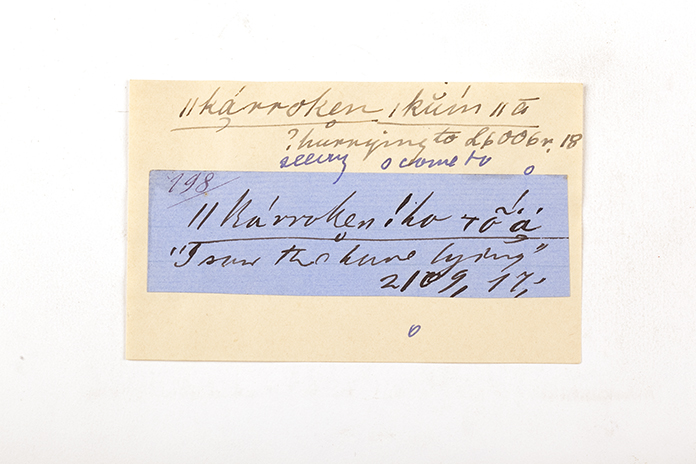 ‖kárroken ǀkŭín ‖ā
?hurrying to L.6006r. 18
seeing o come to o
198
‖kárroken !ko
"I saw the hare lying"
2109, 17;
o